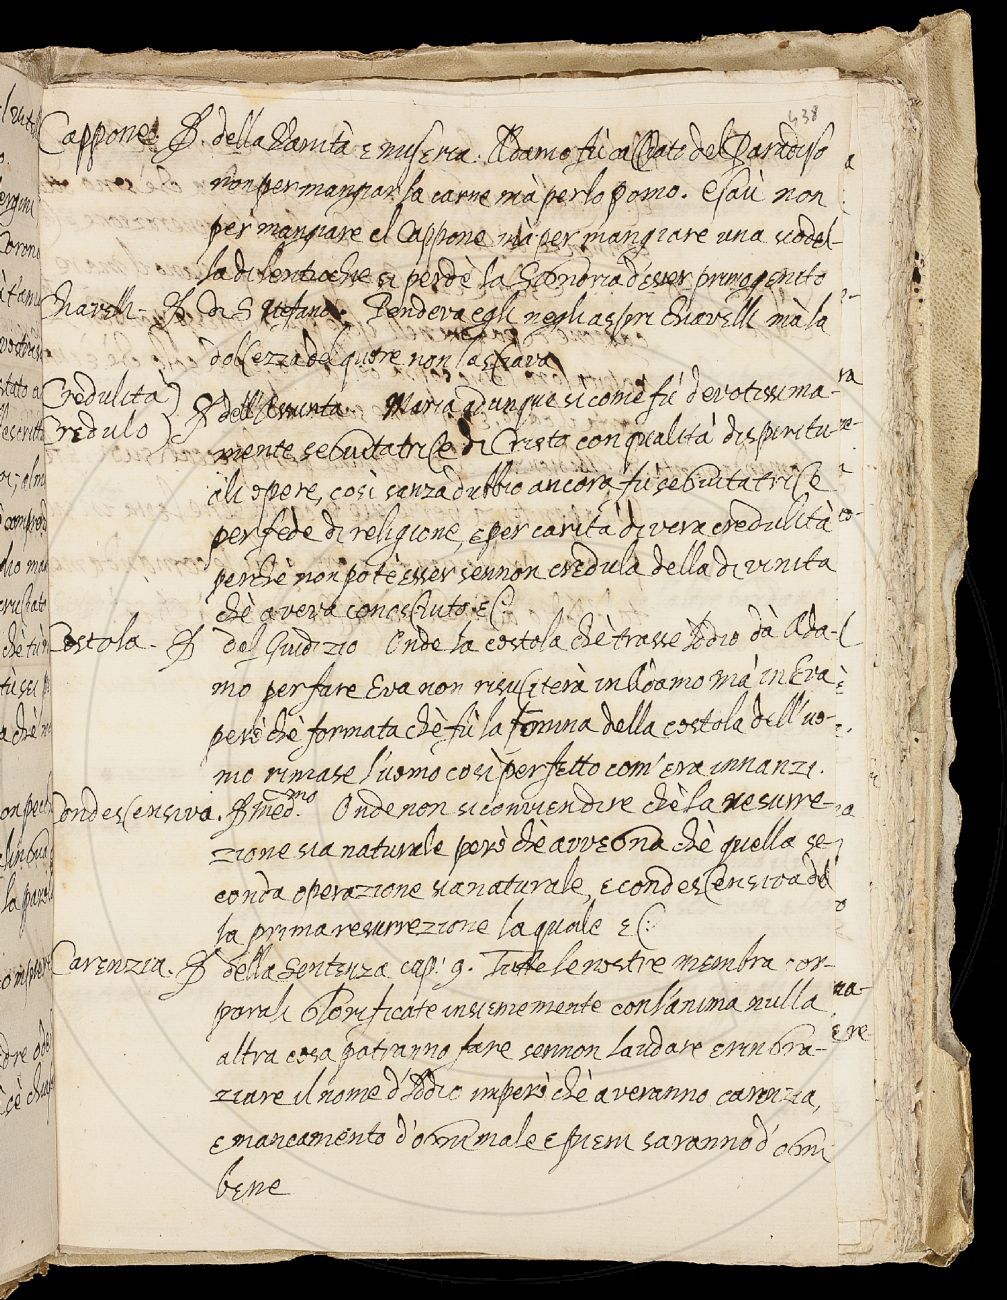 438
Cappone. P. della Vanità e miseria. Adamo fù cacciato del Paradiso
non per mangiar la carne mà per lo pomo. Esaù non
per mangiare el Cappone mà per mangiare una scodel-
la di lenticchie si perdè la Signoria d'esser primogenito
Chavelli. P. di S. Stefano. Pendeva egli negli aspri chavelli mà la
dolcezza del quore non lasciava
Credulità)
Credulo) P. dell'Assunta. Maria adunque sicome fù devotissima-
mente seguitatrice di Cristo con qualità di spiritu-
ali opere, così sanza dubbio ancora fù seguitatrice
per fede di religione, e per carità di vera credulità
perchè non potè esser sennon credula della divinità
chè aveva conosciuto &c.
Costola. P. del Giudizio Onde la costola chè trasse Iddio dà Ada-
mo per fare Eva non risuciterà in Adamo mà in Eva
però chè formata chè fù la femina della costola dell'uo-
mo rimase l'uomo così perfetto com'era innanzi.
Condescensiva. P. med.mo Onde non si conviendire chè la resurre-
zione sia naturale però chè avvegna chè quella se-
conda operazione sia naturale, e condescensiva del
la prima resurrezione la quale &c.
Carenzia. P. della Sentenza cap: 9. Tutte le nostre membra cor-
porali glorificate insiememente con l'anima nulla
altra cosa potranno fare sennon laudare e ringra-
ziare il nome d'Iddio imperò chè averanno carenzia,
e mancamento d'ogni male e pieni saranno d'ogni
bene